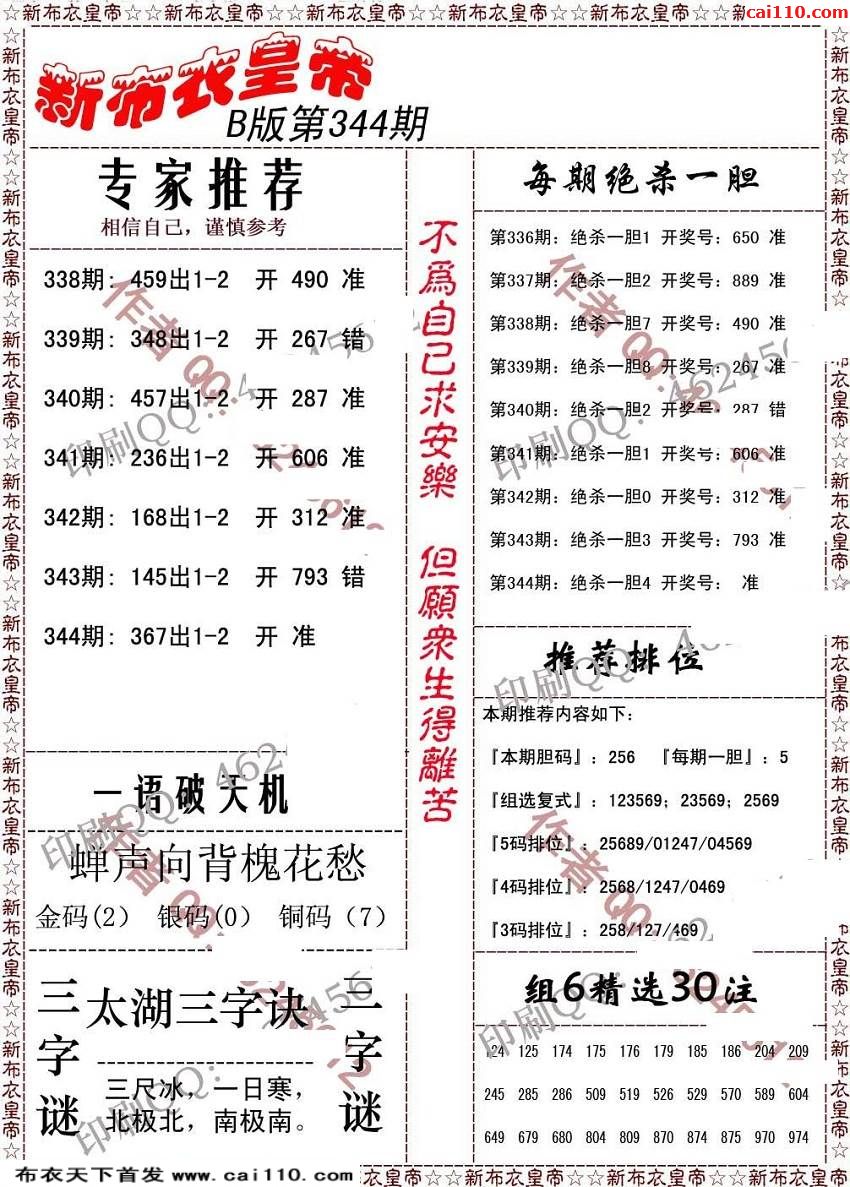 ☆新布衣皇帝☆☆新布衣皇帝☆☆新布衣皇帝☆☆新布衣皇帝☆☆新布衣皇帝☆☆新
cai110.com
新布衣皇帝
B版第344期
专家推荐
相信自己，谨慎参考
338期: 459出1-2 开 490 准
339期: 348出1-2 开 267 错
340期: 457出1-2 开 287 准
341期: 236出1-2 开 606 准
342期: 168出1-2 开 312 准
343期: 145出1-2 开 793 错
344期: 367出1-2 开 准
一语破天机
蝉声向背槐花愁
金码(2) 银码(0) 铜码（7）
三字谜
太湖三字诀
三尺冰，一日寒，
北极北，南极南。
三字谜
不為自己求安樂 但願衆生得離苦
每期绝杀一胆
第336期: 绝杀一胆1 开奖号: 650 准
第337期: 绝杀一胆2 开奖号: 889 准
第338期: 绝杀一胆7 开奖号: 490 准
第339期: 绝杀一胆8 开奖号: 267 准
第340期: 绝杀一胆2 开奖号: 287 错
第341期: 绝杀一胆1 开奖号: 606 准
第342期: 绝杀一胆0 开奖号: 312 准
第343期: 绝杀一胆3 开奖号: 793 准
第344期: 绝杀一胆4 开奖号: 准
推荐排位
本期推荐内容如下:
『本期胆码』: 256 『每期一胆』: 5
『组选复式』: 123569; 23569; 2569
『5码排位』: 25689/01247/04569
『4码排位』: 2568/1247/0469
『3码排位』: 258/127/469
组6精选30注
124 125 174 175 176 179 185 186 204 209
245 285 286 509 519 526 529 570 589 604
649 679 680 804 809 870 874 875 970 974
布衣天下首发 www.cai110.com
☆新布衣皇帝☆☆新布衣皇帝☆☆新布衣皇帝☆☆新布衣皇帝☆
作者QQ:
印刷QQ: 462456